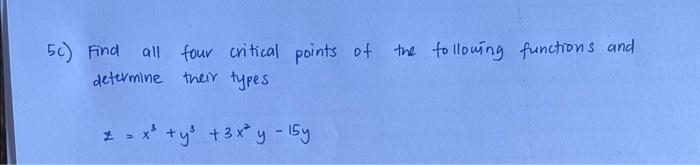 5c) Find all four critical points of the following functions and
determine their types
z = x³ + y³ + 3x² y - 15y